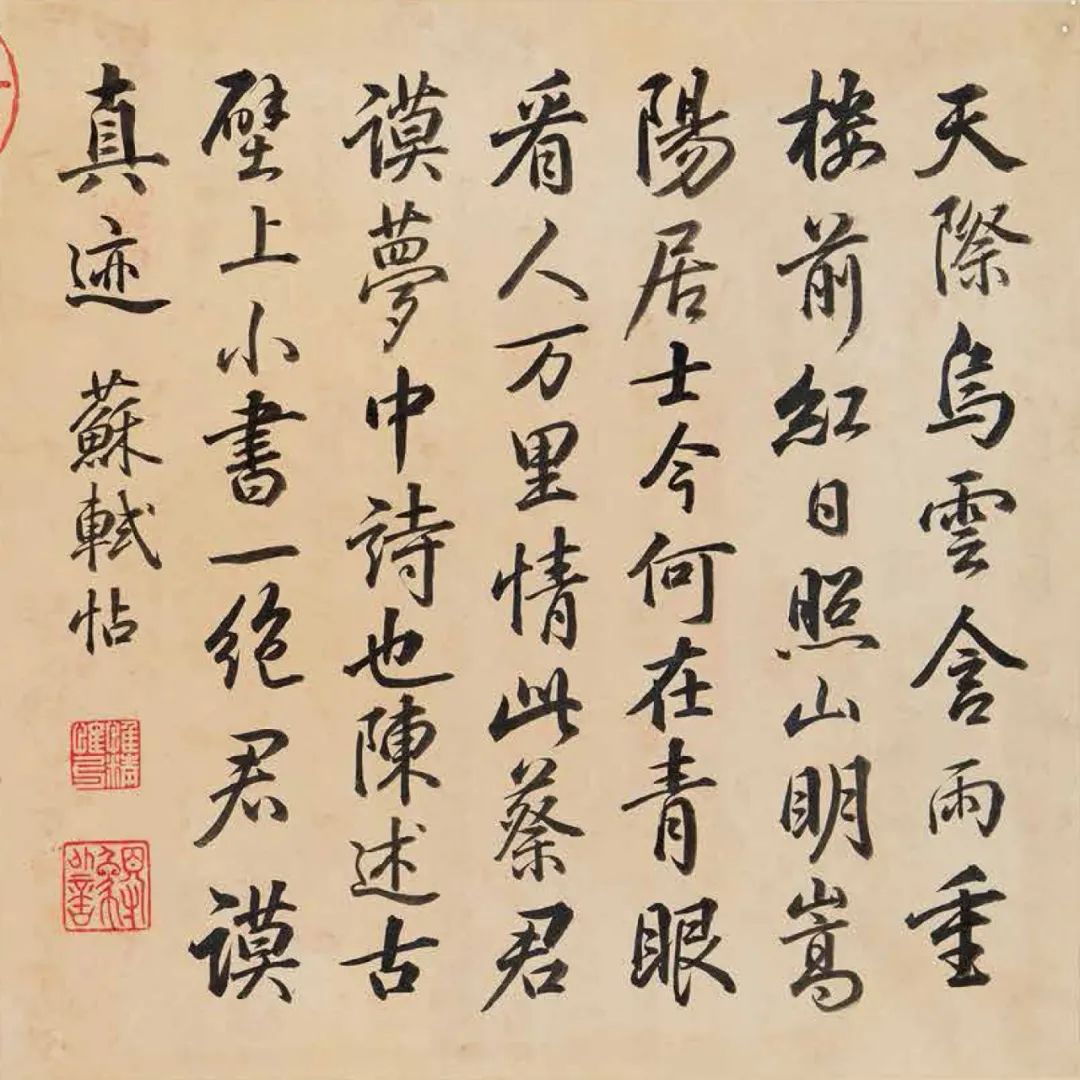 天際烏雲含雨重
楼前紅日照山明嵩
陽居士今何在青眼
看人万里情此蔡君
謨夢中詩也陳述古
壁上小書一絶君謨
真迹 蘇軾帖